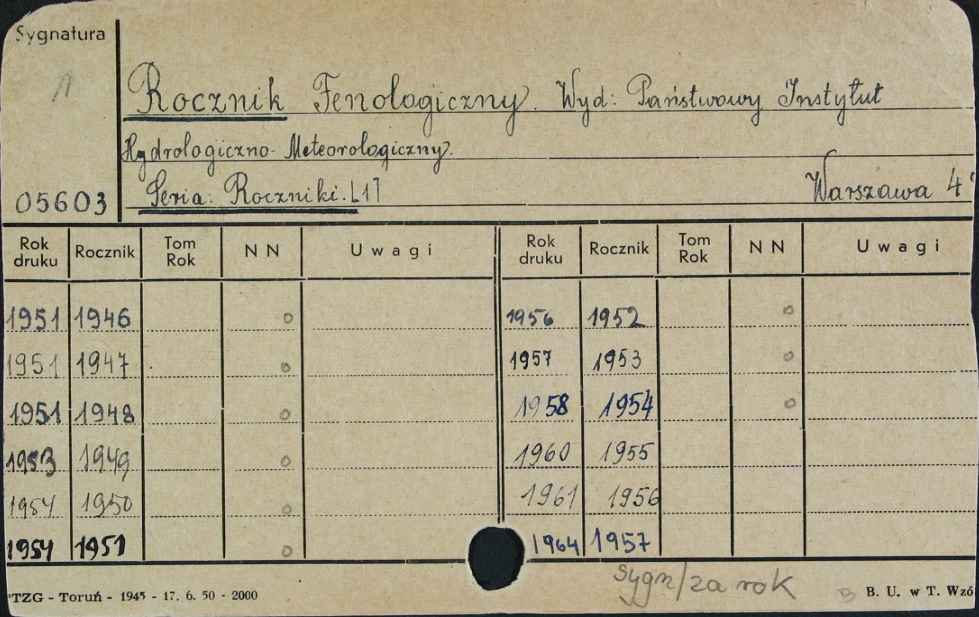 Sygnatura
1
Rocznik Fenologiczny. Wyd: Państwowy Instytut
Hydrologiczno-Meteorologiczny.
05603 Seria: Roczniki. Warszawa 4°
Rok druku Rocznik Tom Rok N N Uwagi Rok druku Rocznik Tom Rok N N Uwagi
1951 1946 o 1956 1952 o
1951 1947 o 1957 1953 o
1951 1948 o 1958 1954 o
1953 1949 o 1960 1955
1954 1950 o 1961 1956
1954 1951 o 1964 1957
Sygn/za rok
TZG - Toruń - 1945 - 17. 6. 50 - 2000 B. U. w T. Wzó